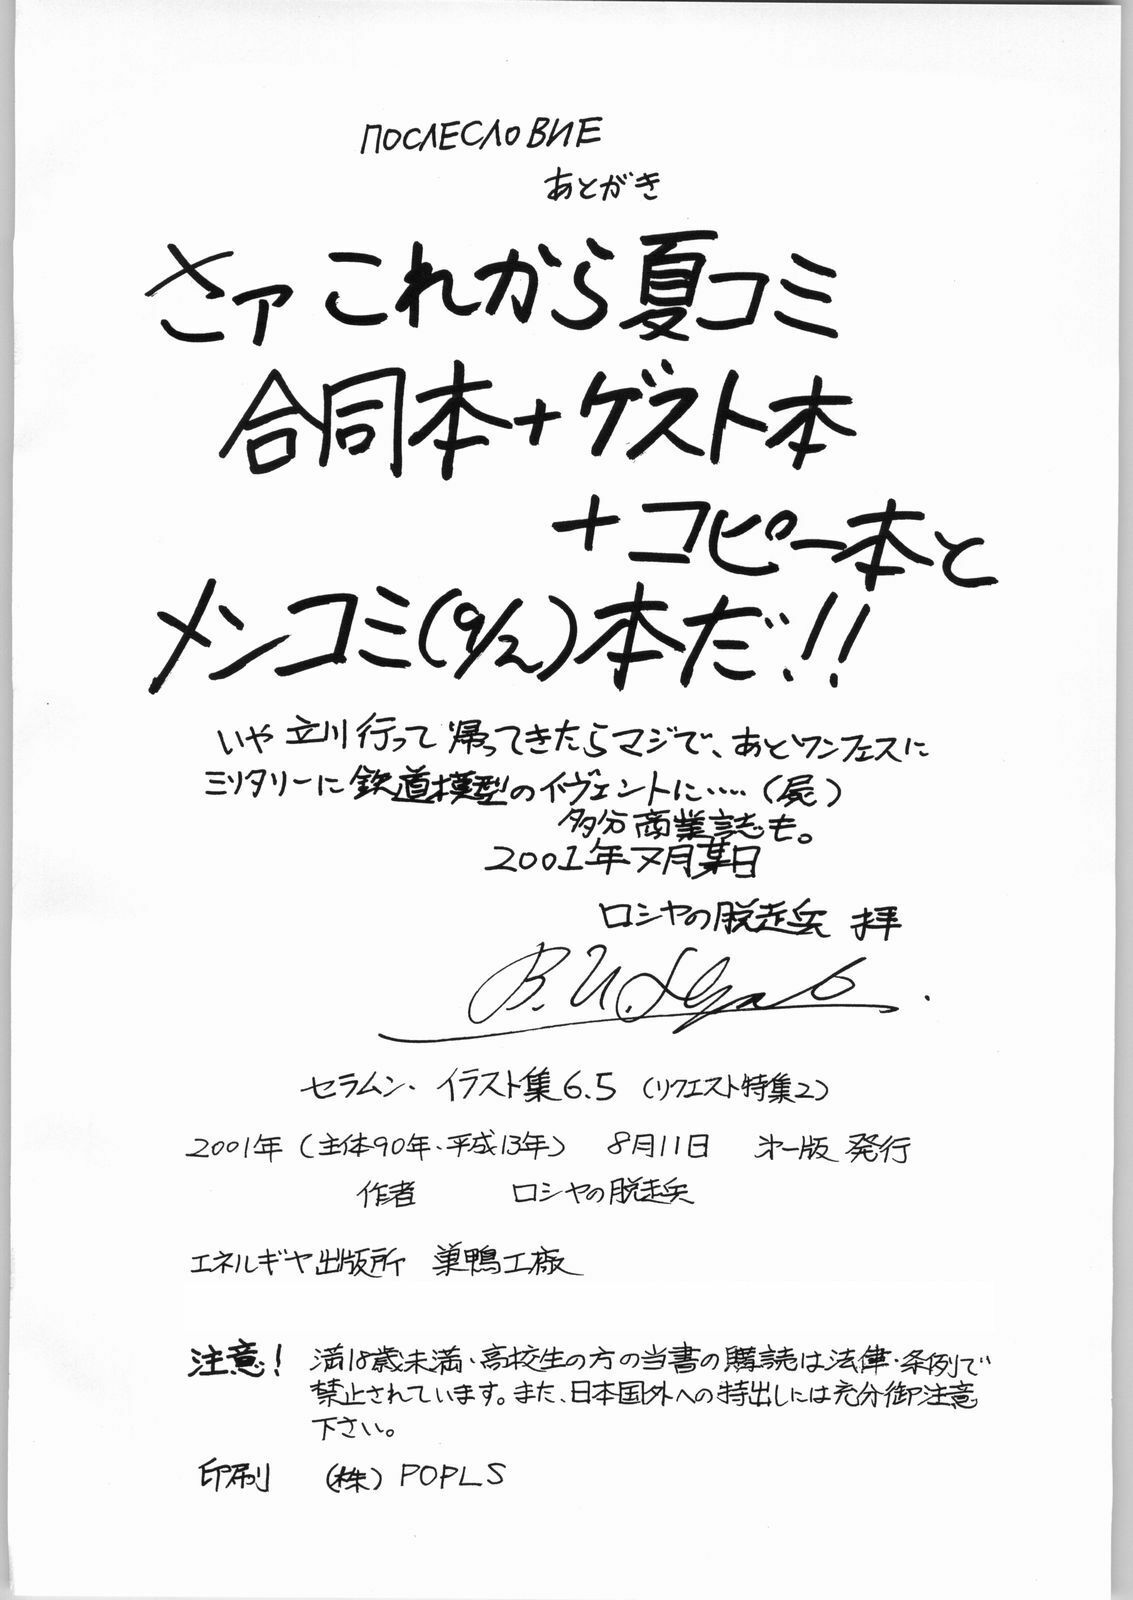 ПОСЛЕСЛОВИЕ
あとがき
さァ これから夏コミ
合同本+ゲスト本
+コピー本と
メンコミ(9/2)本だ!!
いや 立川 行って 帰ってきたらマジで、あとワンフェスに
ミリタリーに鉄道模型のイヴェントに……(屍)
多分商業誌も。
2001年7月某日
ロシヤの脱走兵 拝
セラムン・イラスト集6.5 (リクエスト特集2)
2001年(主体90年・平成13年) 8月11日 第一版 発行
作者 ロシヤの脱走兵
エネルギヤ出版所 巣鴨工廠
注意! 満18歳未満・高校生の方の当書の購読は法律・条例で
禁止されています。また、日本国外への持出しには充分御注意
下さい。
印刷 (株) POPLS